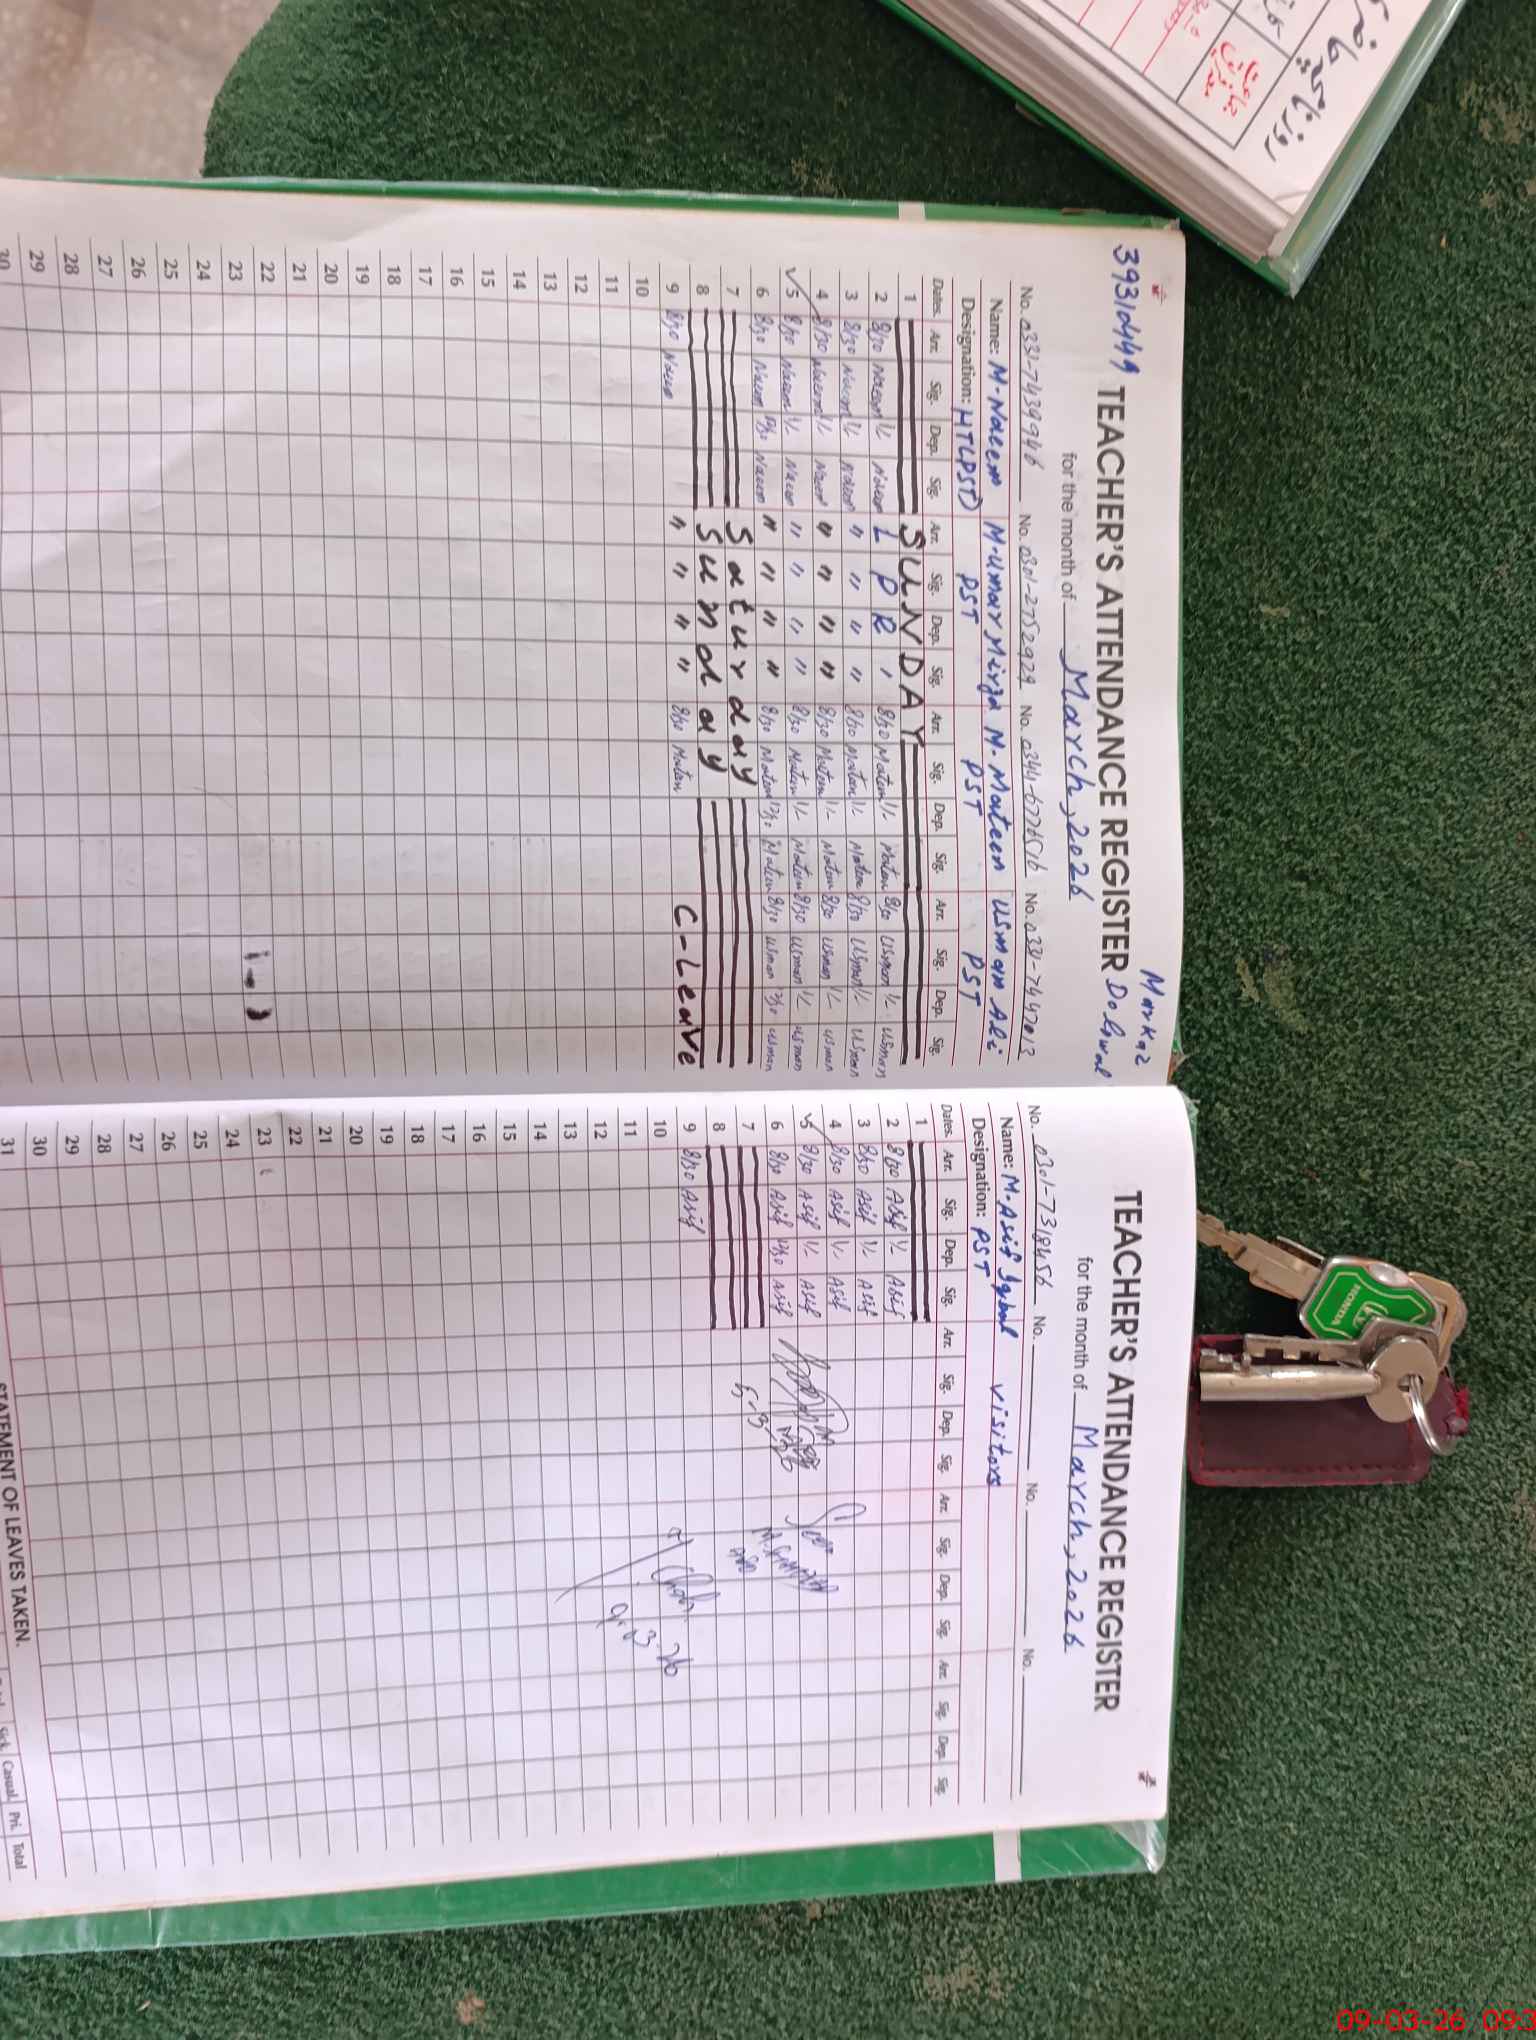 39310449 TEACHER'S ATTENDANCE REGISTER Markaz
for the month of March, 2026
No. 0331-7439946 No. 0301-2752929 No. 0344-6776516 No. 0331-7447013
Name: M-Naeem M-umar Mirza M. Mateen usman Ali
Designation: PST PST PST
Dates. Arr. Sig. Dep. Sig. Arr. Sig. Dep. Sig. Arr. Sig. Dep. Sig. Arr. Sig. Dep. Sig.
1 SUNDAY
2 8/30 Naeem 1/- Naeem L P R , 8/30 Mateen 1/- Mateen 8/30 Usman 1/- usman
3 8/30 Naeem 1/- Naeem " " " " 8/30 Mateen 1/- Mateen 8/30 Usman 1/- usman
4 8/30 Naeem 1/- Naeem " " " " 8/30 Mateen 1/- Mateen 8/30 usman 1/- usman
5 8/30 Naeem 1/- Naeem " " " " 8/30 Mateen 1/- Mateen 8/30 usman 1/- usman
6 8/30 Naeem 12/30 Naeem " " " " 8/30 Mateen 12/30 Mateen 8/30 usman 12/30 usman
7 Saturday
8 Sunday
9 8/30 Naeem " " " " 8/30 Mateen C-Leave
10
11
12
13
14
15
16
17
18
19
20
21
22
23
24
25
26
27
28
29
30
TEACHER'S ATTENDANCE REGISTER
for the month of March, 2026
No. 0301-7318456 No. No. No.
Name: M. Asif Iqbal visitors
Designation: PST
Dates. Arr. Sig. Dep. Sig. Arr. Sig. Dep. Sig. Arr. Sig. Dep. Sig. Arr. Sig. Dep. Sig.
1
2 8/30 Asif 1/- Asif
3 8/30 Asif 1/- Asif
4 8/30 Asif 1/- Asif
5 8/30 Asif 1/- Asif
6 8/30 Asif 12/30 Asif
7 5-3
8
9 8/30 Asif
10 9-3-26
11
12
13
14
15
16
17
18
19
20
21
22
23
24
25
26
27
28
29
30
31
STATEMENT OF LEAVES TAKEN.
Sick Casual Pri. Total
HONDA
09-03-26 09:3